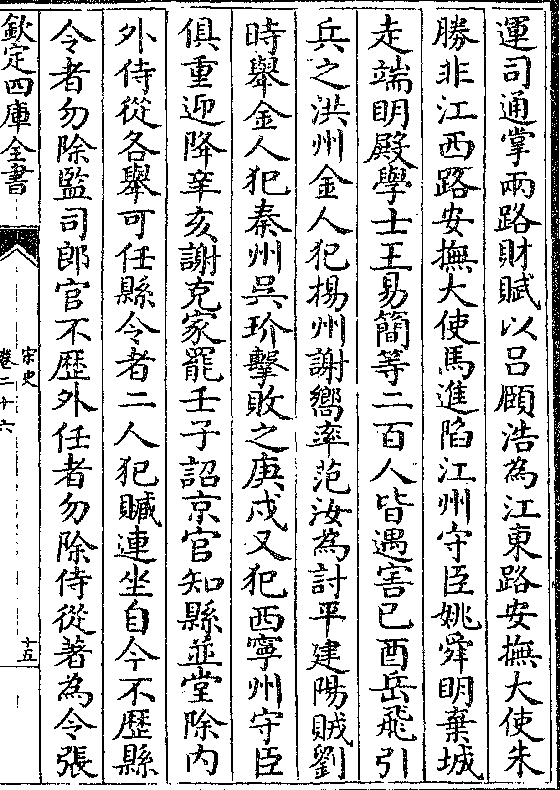 運司通掌兩路財賦以吕頤浩為江東路安撫大使朱
勝非江西路安撫大使馬進陷江州守臣姚舜明棄城
走端明殿學士王易簡等二百人皆遇害己酉岳飛引
兵之洪州金人犯揚州謝嚮率范汝為討平建陽賊劉
時舉金人犯秦州吳玠擊敗之庚戌又犯西寧州守臣
俱重迎降辛亥謝克家罷壬子詔京官知縣並堂除内
外侍從各舉可任縣令者二人犯贓連坐自今不歴縣
令者勿除監司郎官不歴外任者勿除侍從著為令張
欽定四庫全書
宋史
卷二十六
十五